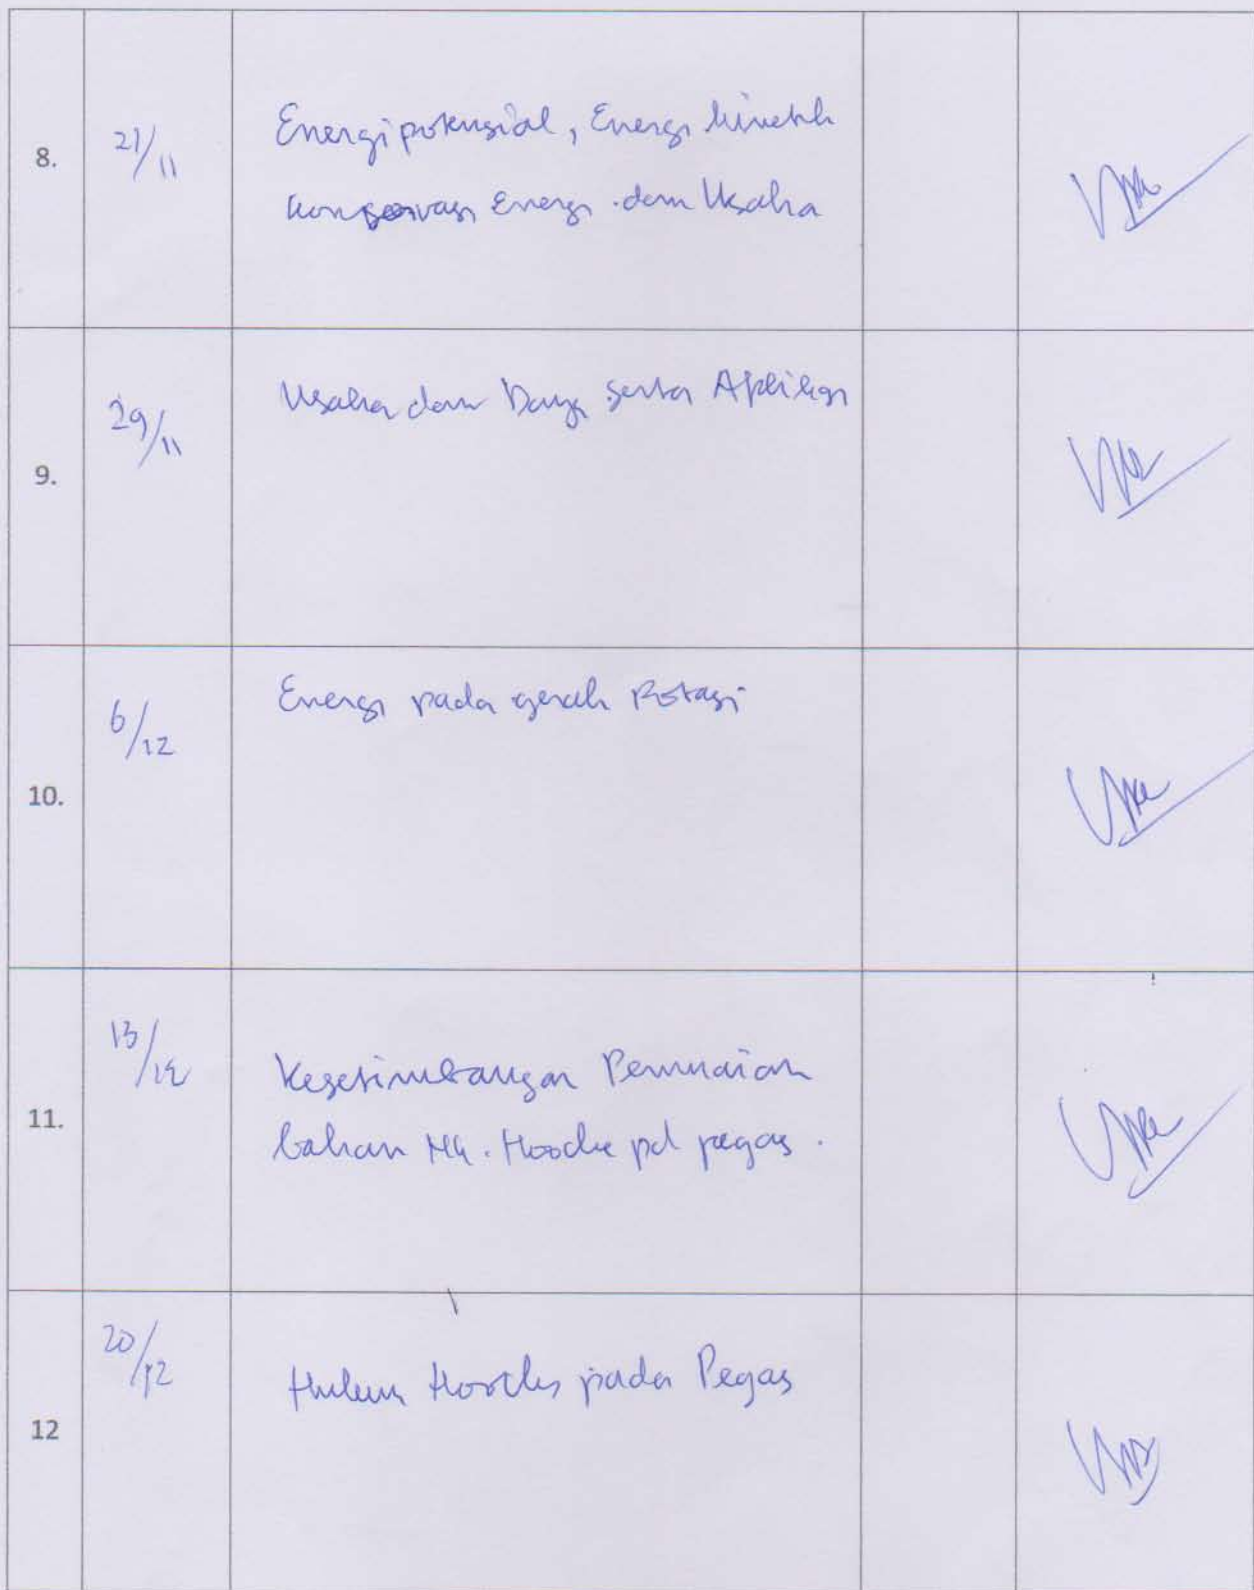 8.
21/11
Energi potensial, Energi kinetik
konservasi Energi dan Usaha
9.
29/11
Usaha dan Daya serta Aplikasi
10.
6/12
Energi pada gerak Rotasi
11.
13/12
Kesetimbangan Pemuaian
bahan Hk. Hooke pd pegas.
12
20/12
Hukum Hooke pada Pegas